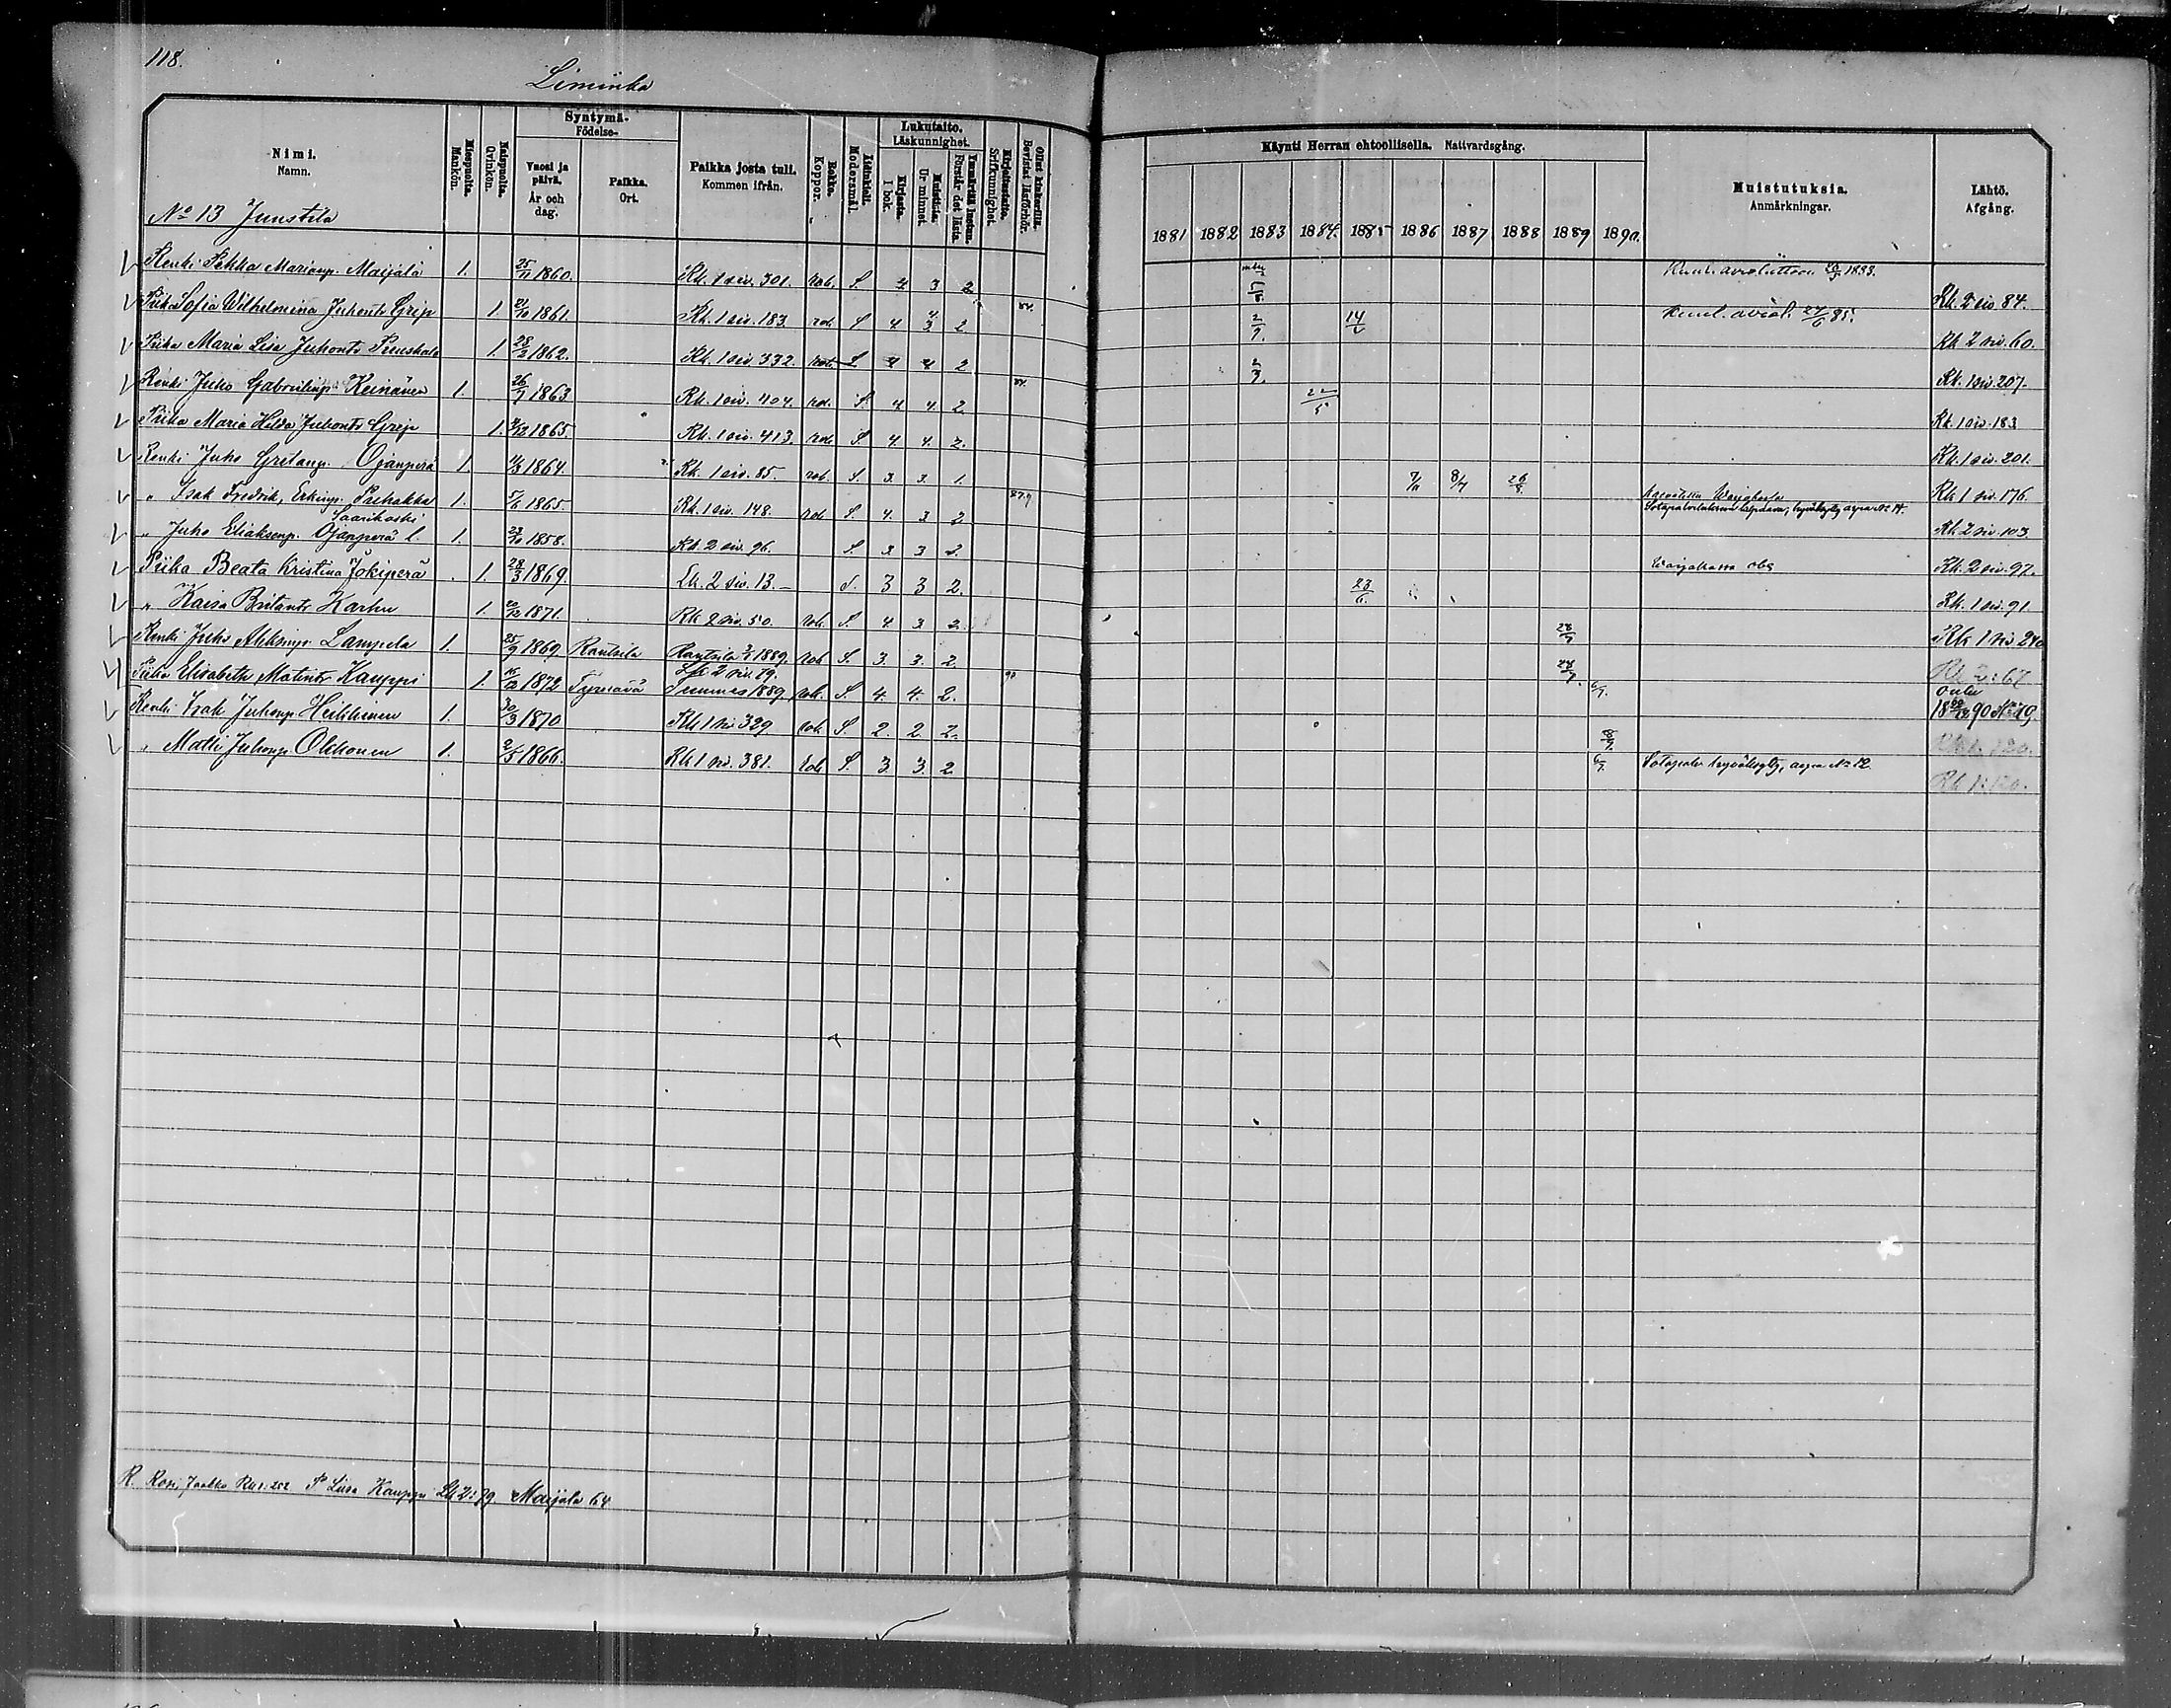 118.
Liminka
Nimi. Namn.
Miespuolia. Mankön.
Naispuolia. Qvinkön.
Syntymä- Födelse-
Vuosi ja päivä. År och dag.
Paikka. Ort.
Paikka josta tuli. Kommen ifrån.
Rokko. Koppor.
Äidinkieli. Modersmål.
Lukutaito. Läskunnighet.
Kirjasta. I bok.
Muistista. Ur minnet.
Ymmärtää luetun. Förstår det lästa.
Kirjoitustaito. Skrifkunnighet.
Ollut kinkerillä. Bevistat läsförhör.
Käynti Herran ehtoollisella. Nattvardsgång.
1881 1882 1883 1884. 1885 1886 1887 1888 1889 1890.
Muistutuksia. Anmärkningar.
Lähtö. Afgång.
No 13 Junstila
Renki Pekka Marianp. Maijala 1. 25/11 1860. Rk. 1 siv. 301. rok. S. 4 3 2 1883. Rk. 2 siv 84.
Piika Sofia Wilhelmina Juhont. Grip 1. 21/10 1861. Rk. 1 siv. 183. rok S 4 3 2 84. 2/7. 14/6 Kuul. aviol. 85. Rk 2 siv. 60.
Piika Maria Lisa Juhont. 1. 28/2 1862. Rk. 1 siv. 332. rok. S 4 4 2 2/7. Rk. 1 siv. 207.
Renki Juho Gabrielinp. Keinänen 1. 26/7 1863 Rk. 1 siv. 404. rok. S. 4 4. 2. 84. 22/5 Rk. 1 siv. 183
Piika Maria Hilda Juhont. Grip 1. 1865. Rk. 1 siv. 413. rok S 4. 4. 2. Rk. 1 siv. 201.
Renki Juho Gretanp. Ojanperä 1. 1864. Rk. 1 siv. 85. rok. S. 3. 3. 1. 8/7 26/8. Rk 1 siv. 176.
" Isak Fredrik, Erkinp. Puhakka 1. 5/6 1865. Rk. 1 siv. 148. rok S. 4. 3 2 arpa No 14. Rk 2 siv. 103.
Saarikoski
" Juho Eliaksenp. Ojanperä l. 1. 23/10 1858. Rk. 2 siv. 96. S. 3 3 2. Rk. 2 siv. 97.
Piika Beata Kristina Jokiperä 1. 28/3 1869. Lk. 2 siv. 13. S. 3 3 2. 23/6. Rk. 1 siv. 91
" Kaisa Britant. Karhu 1. 1871. Rk 2 siv. 50. rok. S 4 3 2. Rk 1 siv 240
Renki Juho Lampela 1. 25/9 1869 Rautsila Rantsila 1889. rok S. 3. 3. 2.
Piika Elisabeth Matint. Kauppi 1. 1872 Tyrnävä Lk 2 siv. 79. Temmes 1889 rok. S. 4. 4. 2. 90 Oulu 1890 No 19
Renki Isak Juhonp. Heikkinen 1. 30/3 1870 Rk 1 siv 329 rok S. 2. 2. 2.
" Matti Juhonp. Okkonen 1. 2/5 1866. Rk 1 siv. 381. rok S. 3 3. 2 6/7. arpa No 12. Rk 1:120.
R. Kauppi Lk 2:79 Maijala 64